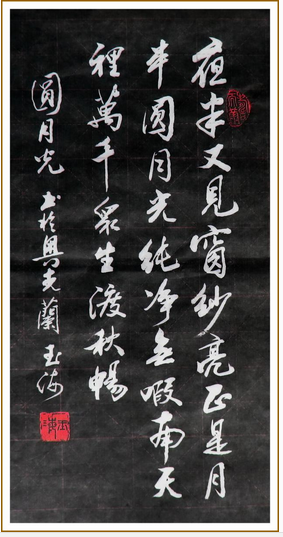 夜半又見窗紗亮正是月
半圓月光純净無暇南天
裡萬千眾生渡秋暢
圓月光 書於奧克蘭 玉海